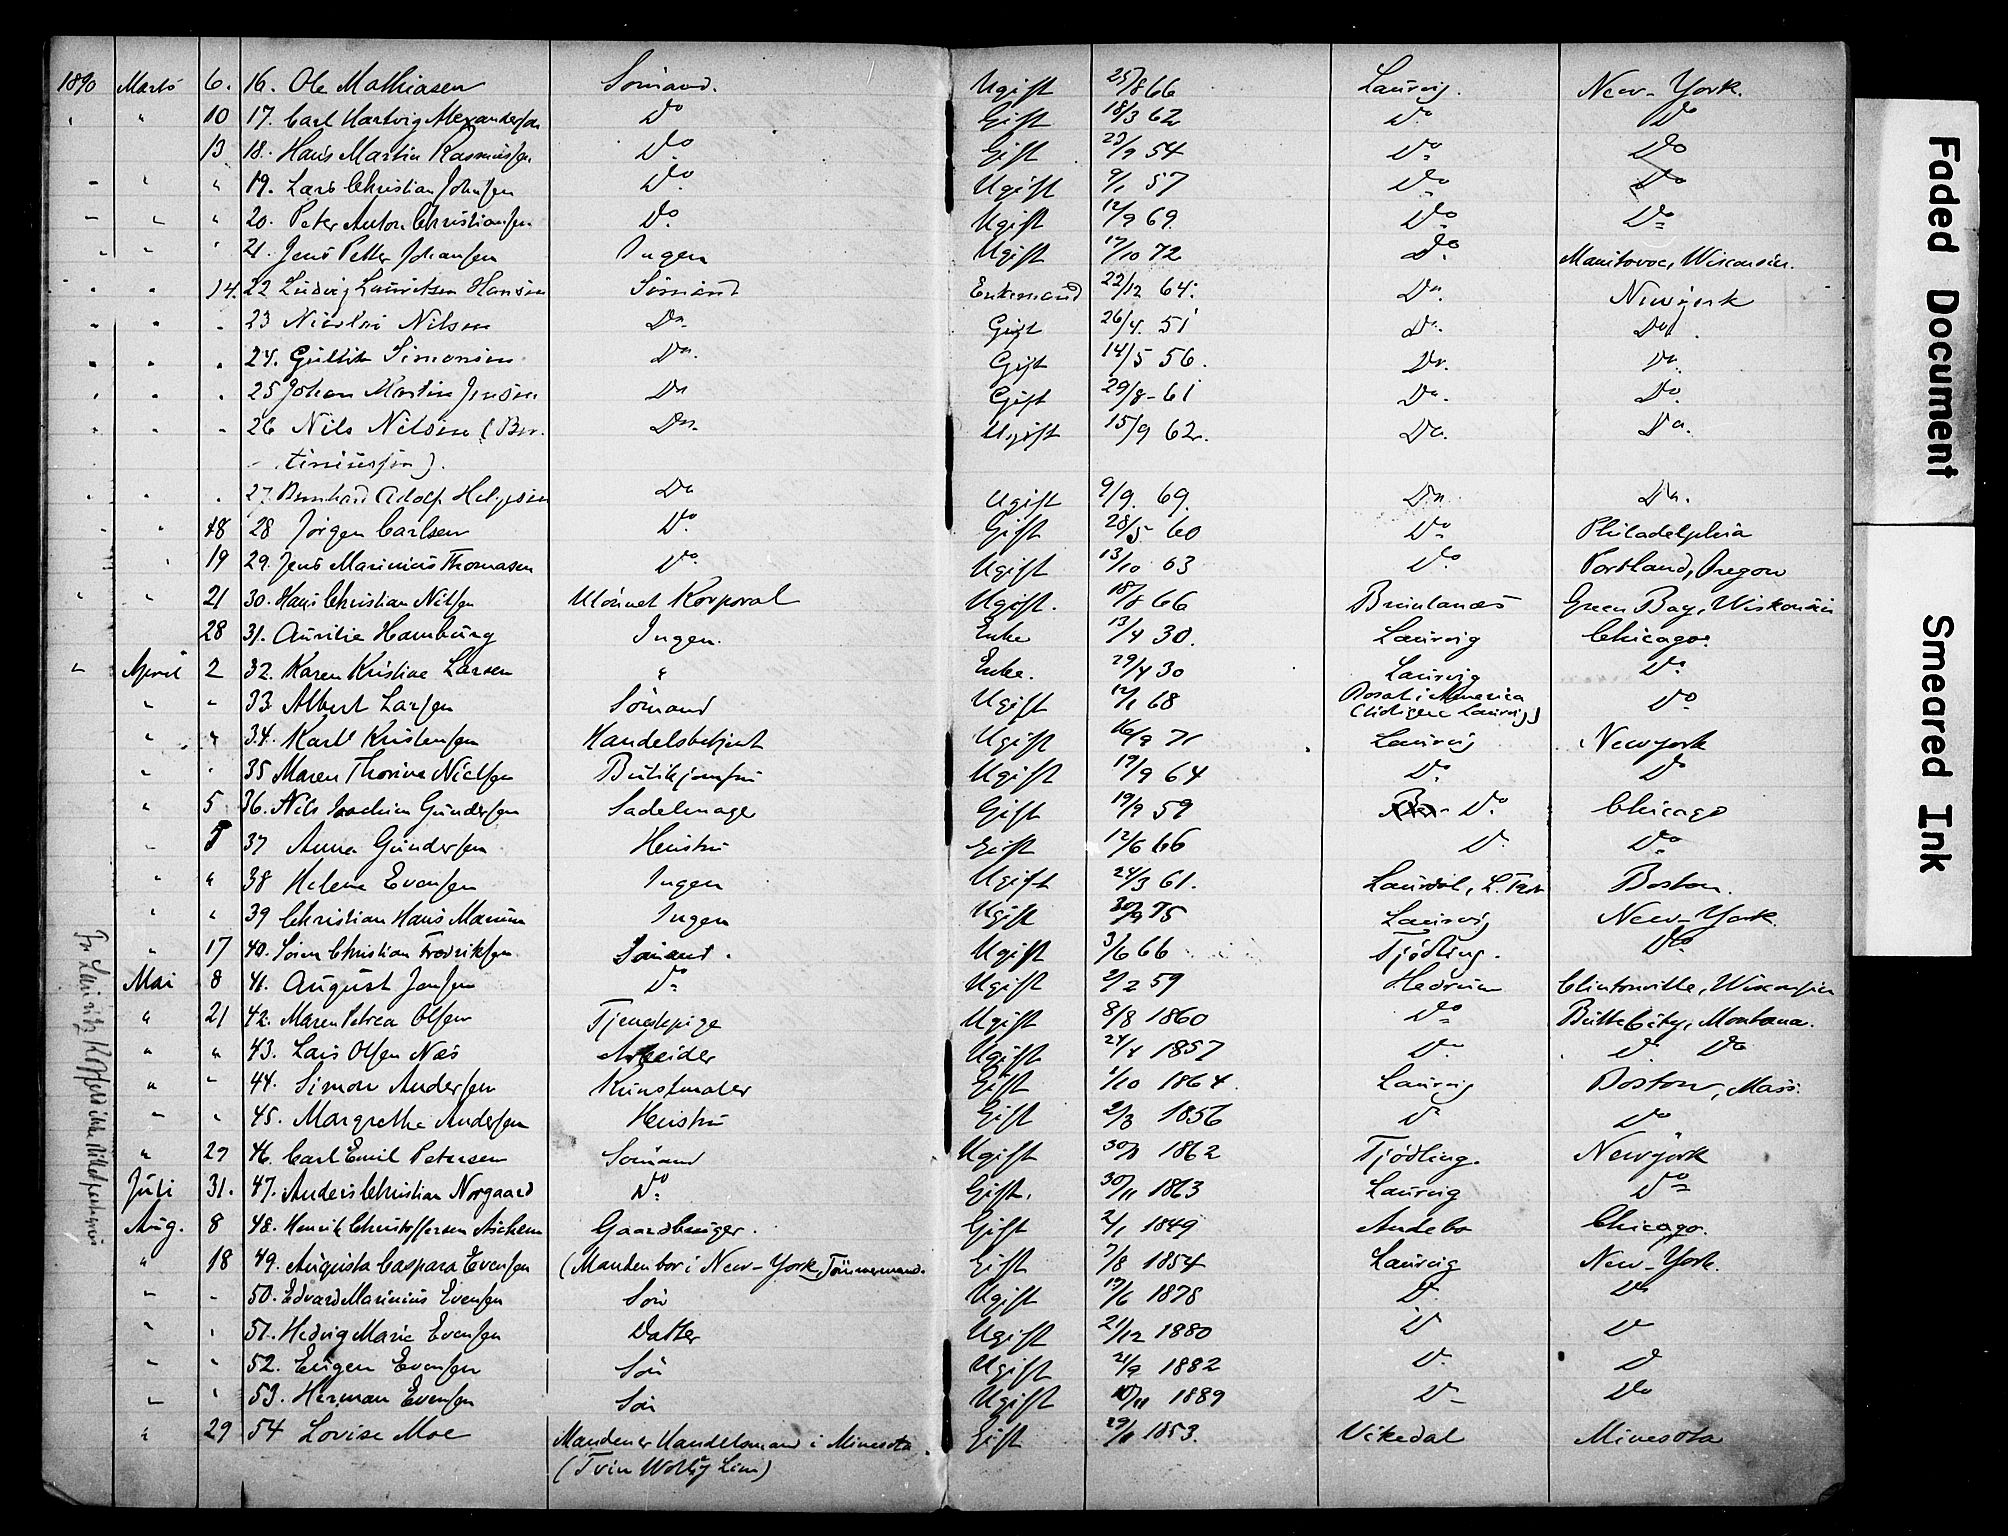 1890 Marts 6. 16. Ole Mathiasen Sömand. Ugift 25/8 66 Laurvig. New-York.
" " 10 17. Carl Hartvig Alexandersen Do Gift 18/3 62 Do Do
13 18. Hans Martin Rasmussen Do Gift 23/9 54 Do Do
" " " 19. Lars Christian Johnsen Do Ugift 9/1 57 Do Do
" " " 20. Peter Anton Christiansen Do Ugift 12/9 69. Do Do
" " " 21. Jens Petter Johansen Ingen Ugift 17/10 72 Do Manitovoc, Wisconsin.
" " 14. 22 Ludvig Lauritsen Hansen Sömand Enkemand 22/12 64. Do Newyork
" " " 23 Nicolai Nilsen Do Gift 26/4. 51 Do Do
" " " 24. Gullik Simonsen Do Gift 14/5 56. Do Do
" " " 25 Johan Martin Jensen Do Gift 29/8-61 Do Do
" " " 26 Nils Nilsen (Ber- Do Ugift 15/9 62. Do Do
tiniussen).
" " " 27. Bernhard Adolf Helgesen Do Ugift 9/9. 69. Do Do
" " 18 28 Jörgen Carlsen Do Gift 28/5 60 Do Philadelphia
" 19 29. Jens Marinius Thomasen Do Ugift 13/10 63 Do Portland, Oregon
" " 21 30. Hans Christian Nilsen Ulönnet Korporal Ugift. 18/8 66 Brunlanæs Green Bay, Wiskonsin
28 31. Aurilie Hamburg Ingen. Enke 13/4 30. Laurvig Chicago.
" April 2 32. Karen Kristine Larsen " Enke. 29/4 30 Laurvig Do
" " 33. Albert Larsen Sömand Ugift 12/1 68 Bosat i America Do
(tidligere Laurvig)
" " 34. Karl Kristensen Handelsbetjent Ugift 16/9 71 Laurvig Newyork
" " 35 Maren Thorine Nielsen Butikjomfru Ugift 19/9 64 Do Do
" 5 36. Nils Joachim Gundersen Sadelmager Gift 19/9 59 Do Chicago
" 5 37 Anna Gundersen Hustru Gift 12/6 66 Do Do
" " 38 Helene Evensen Ingen Ugift 24/3 61. Laurdal, Boston.
" " 39 Christian Hans Ingen Ugift 30/9 75 Laurvig New-York
" 17 40. Sören Christian Fredriksen Sömand. Ugift 3/6 66 Tjödling. Do
Mai 8 41. August Jansen Do Ugift 2/2 59 Hedrum Clintonville, Wisconsin
" 21 42. Maren Petrea Olsen Tjenestepige Ugift 8/8 1860 Do Butte City, Montana.
" " 43. Lars Olsen Næs Arbeider Ugift 24/4 1857 Do Do Do
" " 44. Simon Andersen Kunstmaler Gift 1/10 1864. Laurvig Boston, Mass.
" " 45. Margrethe Andersen Hustru Gift 2/3 1856 Do Do
" 29 46. Carl Emil Petersen Sömand Ugift 1862 Tjödling. Newyork
Juli 31. 47. Anders Christian Norgaard Do Gift. 30/11 1863 Laurvig Do
Aug. 8 48. Henrik Christoffersen Gaardbruger. Gift 2/1 1849 Andebo Chicago.
" 18 49. Augusta Caspara Evensen (Manden bor i New-York, Tömmermand. Gift 7/8 1854 Laurvig New-York.
" " 50. Edvard Marinius Evensen Sön Ugift 17/6 1878 Do Do
" " 51. Hedvig Marie Evensen Datter Ugift 21/12 1880 Do Do
" " 52. Eugen Evensen Sön Ugift 21/9 1882 Do Do
" " 53. Herman Evensen Sön Ugift 10/11 1889 Do Do
" 29 54 Lovise Moe Manden er Handelsmand i Minesota. Gift 1853. Vikedal Minesota
Faded Document
Smeared Ink